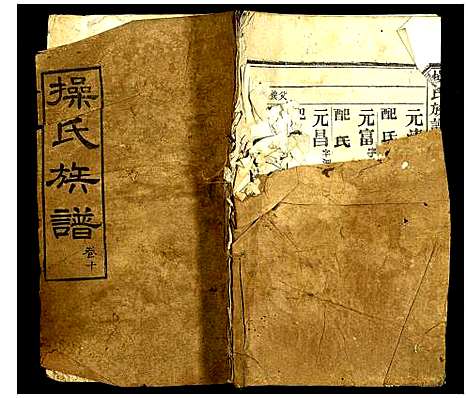 操氏族譜
卷十
氏族譜
元
配氏
元富
字
配氏
元昌
字
配